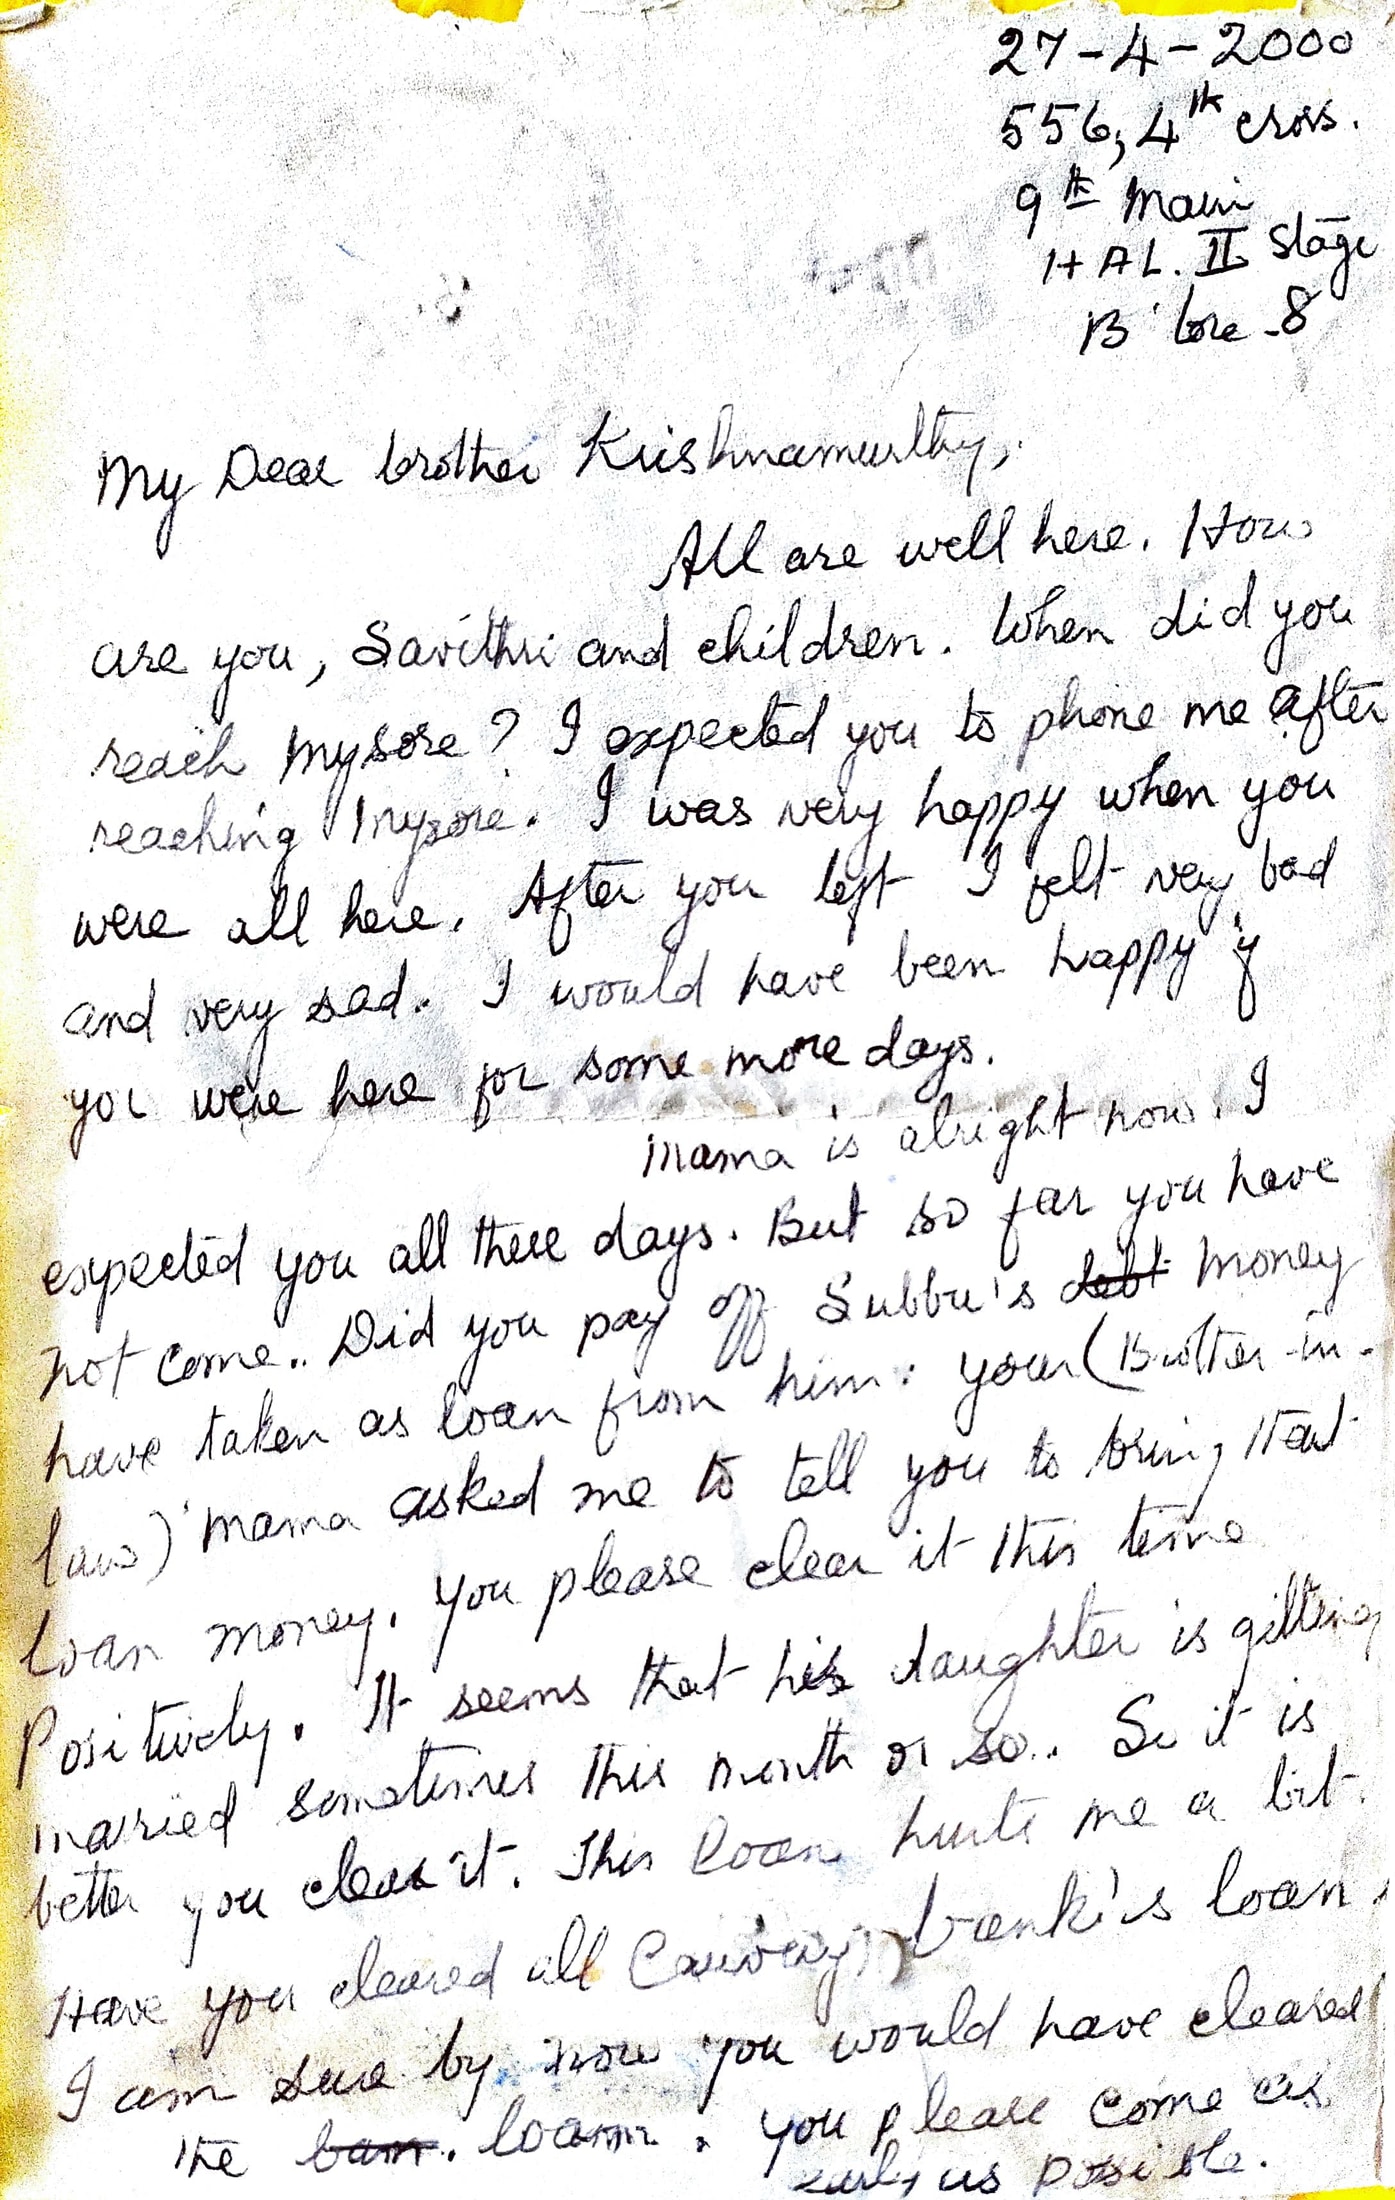 27-4-2000
556, 4th cross.
9th Main
HAL. II Stage
B'lore-8
My Dear brother Krishnamurthy,
All are well here. How
are you, Savithri and children. When did you
reach Mysore? I expected you to phone me after
reaching Mysore. I was very happy when you
were all here. After you left I felt very bad
and very sad. I would have been happy if
you were here for some more days.
Mama is alright now. I
expected you all these days. But so far you have
not come.. Did you pay off Subbu's debt money
have taken as loan from him. your (Brother-in-
law) mama asked me to tell you to bring that
loan money. You please clear it this time
Positively. It seems that his daughter is gitting
married sometimes this month or so.. So it is
better you clear it. This loan hurts me a bit.
Have you cleared all Cauvery bank's loan.
I am sure by now you would have cleared
the loan. You please come as
early as possible.